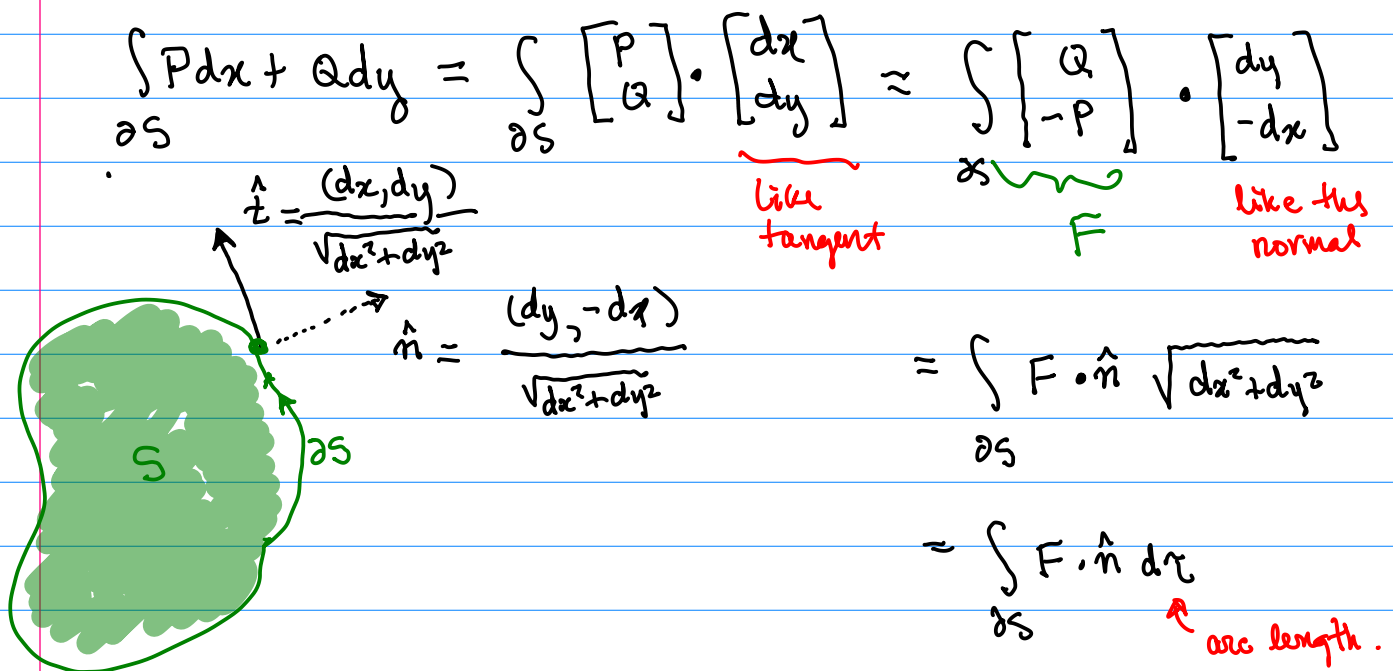 ∫_{∂S} Pdx + Qdy = ∫_{∂S} [P Q] · [dx dy] ≈ ∫_{∂S} [Q -P] · [dy -dx]
like tangent
F
like the normal
t̂ = (dx, dy) / √(dx²+dy²)
n̂ = (dy, -dx) / √(dx²+dy²)
= ∫_{∂S} F · n̂ √(dx²+dy²)
S
∂S
= ∫_{∂S} F · n̂ dτ
arc length.